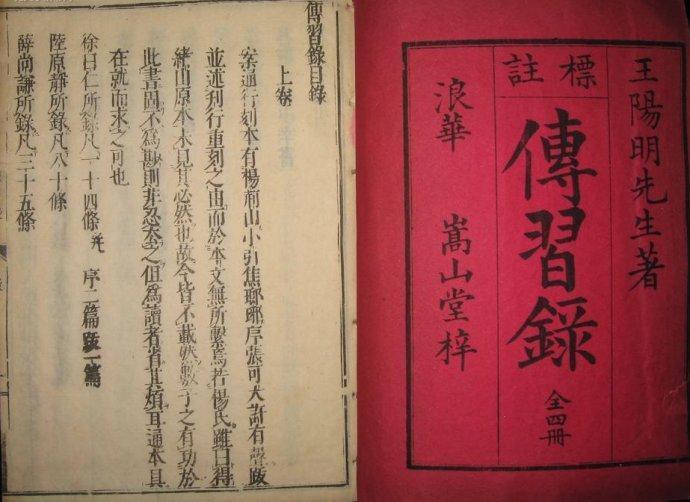 王陽明先生著
標註
傳習錄
全四冊
浪華 嵩山堂梓
傳習錄目錄
上卷
案通行刻本有楊荊山小引焦瑯瑘序張可大許有聲跋
並述刊行重刻之由而於本文無所繫焉若楊氏雖曰得
緒山原本未見其必然也故今皆不載然數子之有功於
此書固不為尠則非忍奈之但為讀者省其煩耳通本具
在就而求之可也
徐曰仁所錄凡一十四條 并 序二篇跋一篇
陸原靜所錄凡八十條
薛尚謙所錄凡三十五條